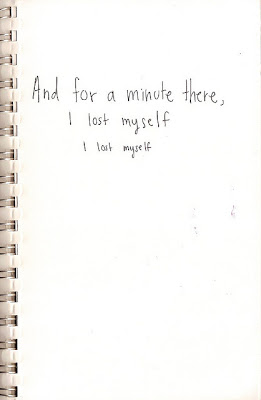 And for a minute there,
I lost myself
I lost myself